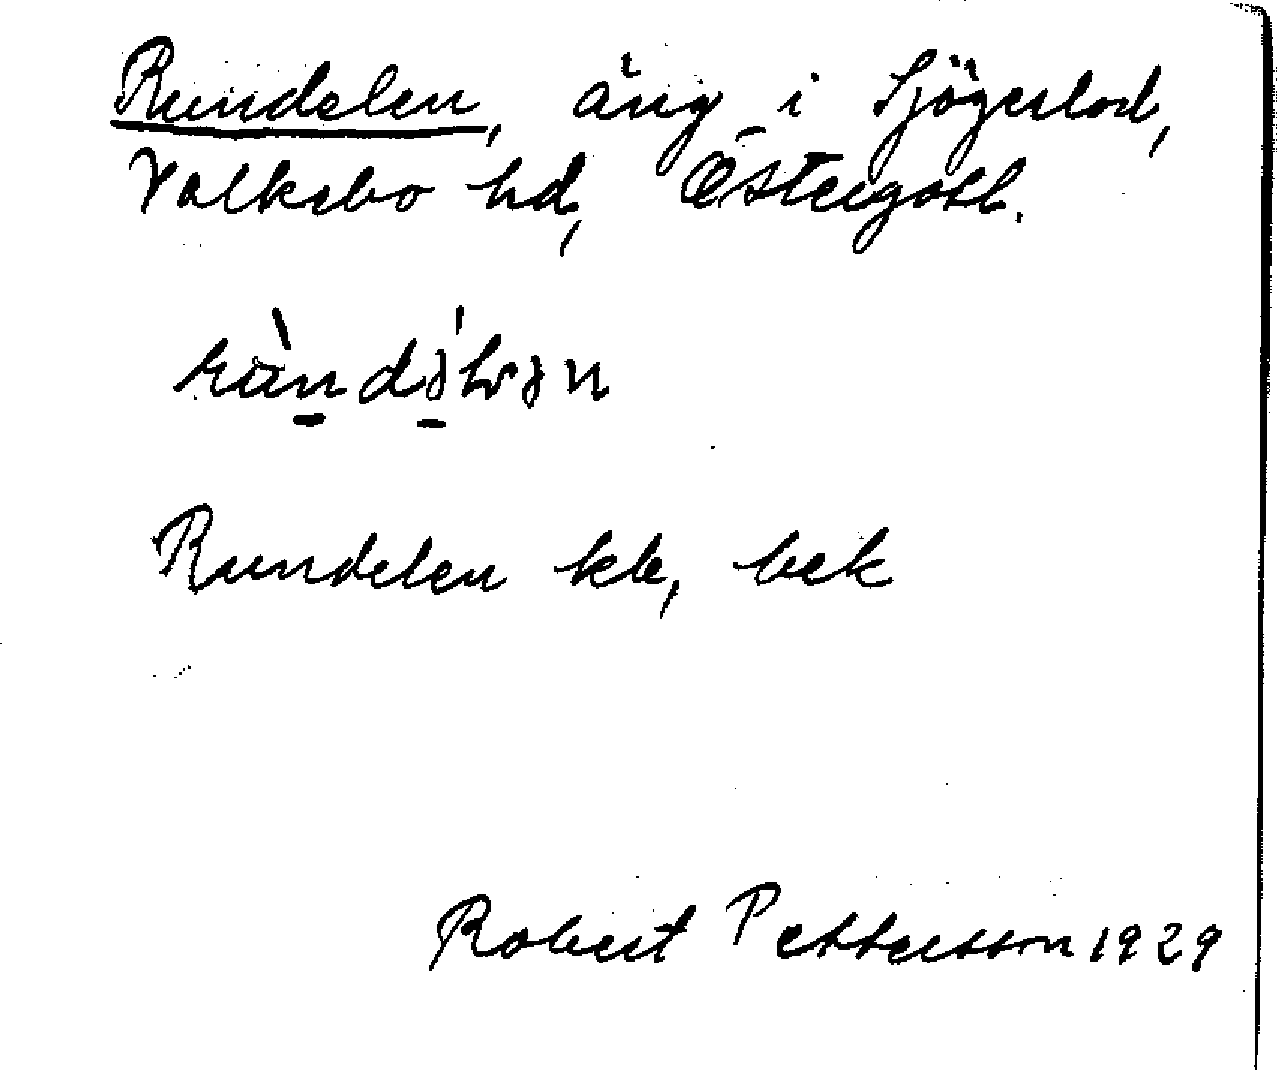 Rundelen, äng i Sjögestad,
Valkebo hd, Östergötl.
Rundelen kb, bek
Robert Pettersson 1929